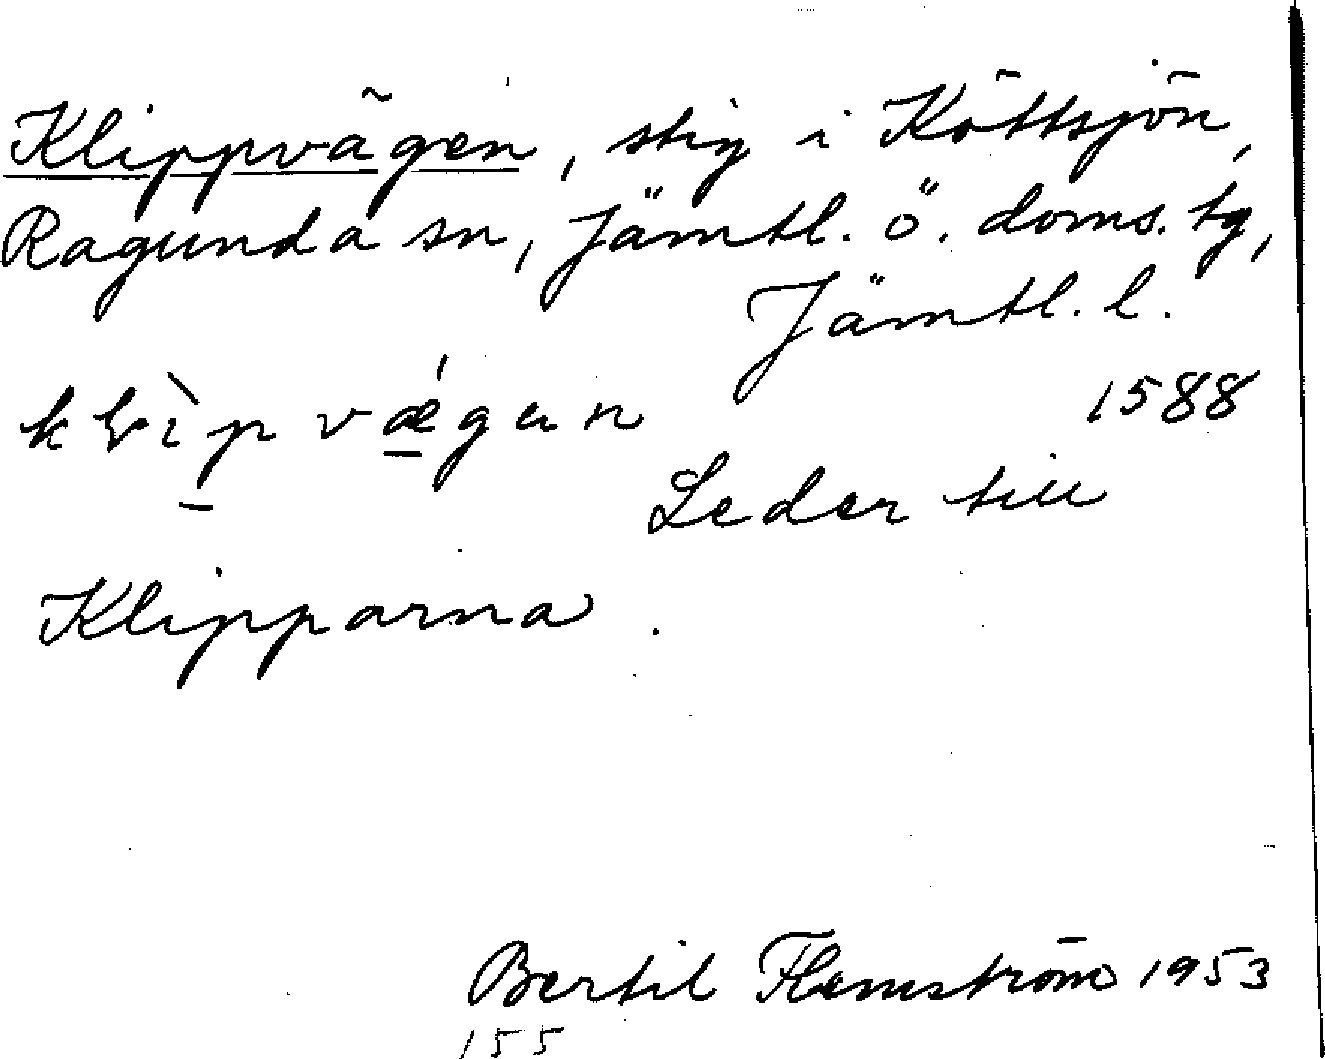 Klippvägen, stig i Köttsjön,
Ragunda sn, Jämtl. ö. doms. tg,
Jämtl. l.
klìpvǽgen 1588
Leder till
Klipparna.
Bertil Flemström 1953
155